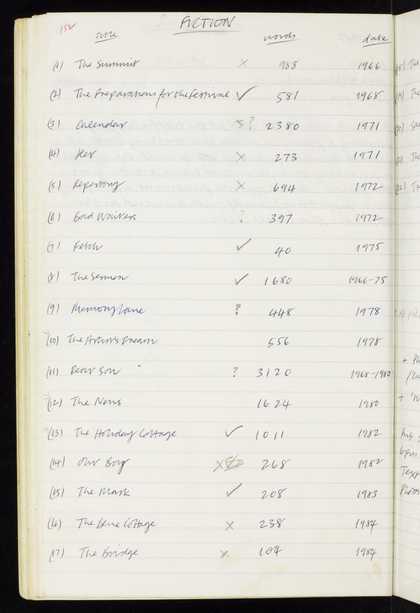 152
FICTION
title words date
(1) The Summit x 988 1966
(2) The Preparations for the Festival ✓ 581 1968
(3) Calendar ? 2380 1971
(4) Her x 273 1971
(5) Repertory x 694 1972
(6) ? 397 1972
(7) Fetch ✓ 40 1975
(8) The Sermon ✓ 1680 1966-75
(9) Memory Lane ? 448 1978
(10) The Artist's Dream 556 1978
(11) Dear Son ? 3120 1968-1980
(12) The News 1624 1980
(13) The Holiday Cottage ✓ 1011 1982
(14) Our Boy x 268 1982
(15) The Mask ✓ 208 1983
(16) The Cottage x 238 1984
(17) The Bridge x 104 1984